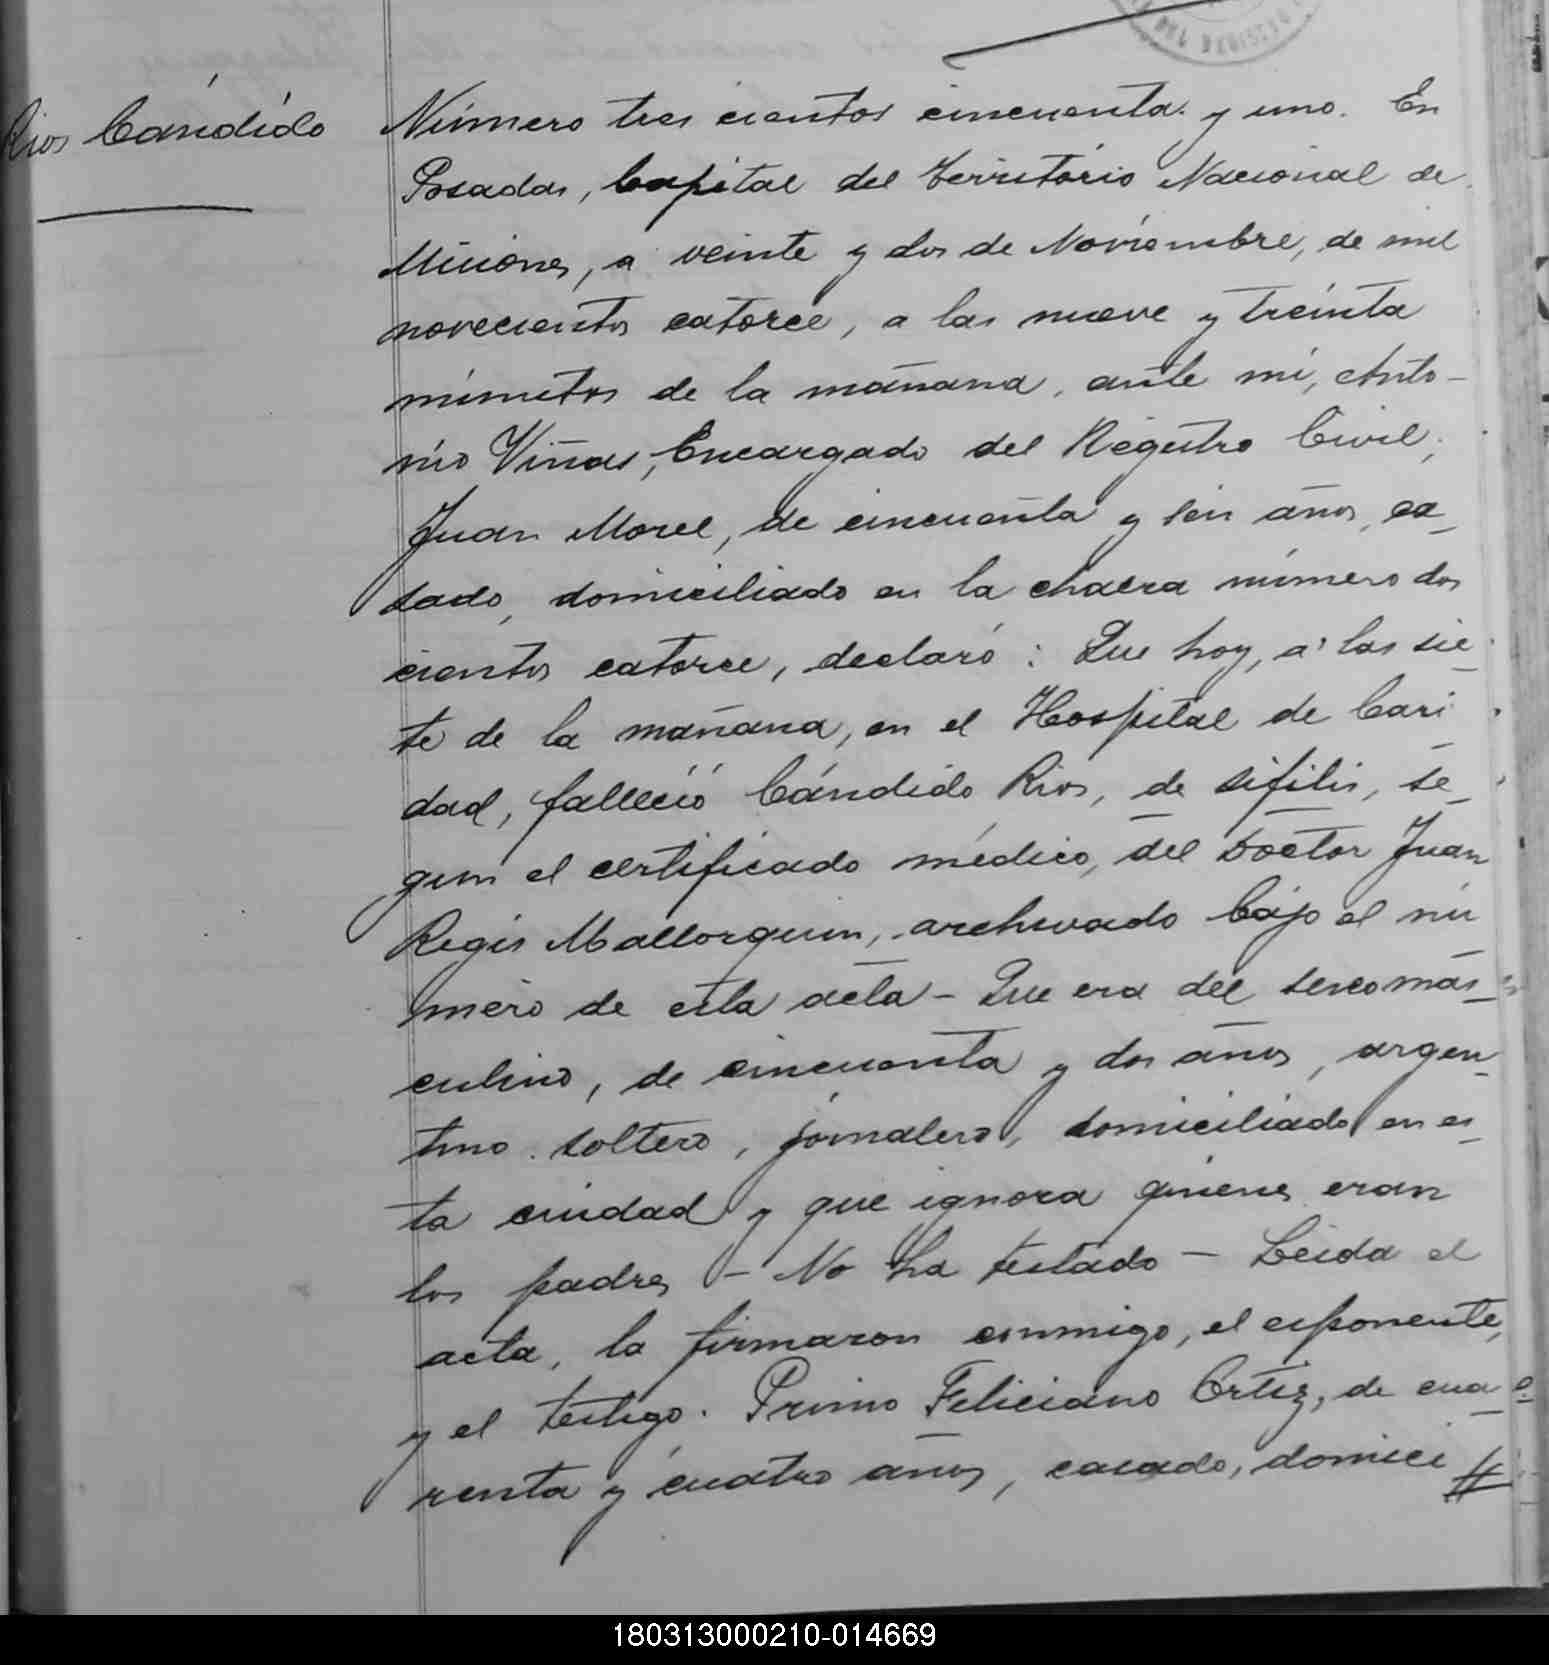 Rios Cándido
Número tres cientos cincuenta y uno. En
Posadas, Capital del Território Nacional de
Misiones, a veinte y dos de Noviembre, de mil
novecientos catorce, a las nueve y treinta
minutos de la mañana, ante mi, Anto-
nio Viñas, Encargado del Registro Civil,
Juan Morel, de cincuenta y seis años, ca-
sado, domiciliado en la chacra número dos
cientos catorce, declaró: Que hoy, a las sie-
te de la mañana, en el Hospital de Cari-
dad, falleció Cándido Rios, de sifilis, se-
gun el certificado médico, del Doctor Juan
Regis Mallorquin, archivado bajo el nú-
mero de esta acta - Que era del sexo mas-
culino, de cincuenta y dos años, argen-
tino. soltero, jornalero, domiciliado en es-
ta ciudad y que ignora quienes eran
los padres - No ha testado - Leida el
acta, la firmaron conmigo, el exponente,
y el testigo. Primo Feliciano Ortiz, de cua-
renta y cuatro años, casado, domici #
180313000210-014669